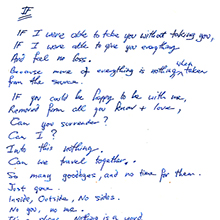 IF
IF I were able to take you without taking you,
IF I were able to give you everything
And feel no loss.
Because more of everything is nothing when taken
from the source.
IF you could be happy to be with me,
Removed from all you know + love,
Can you surrender?
Can I?
Into this nothing.
Can we travel together.
So many goodbyes, and no time for them.
Just gone.
Inside, Outside, No sides.
No you, no me.
Nothing is a word